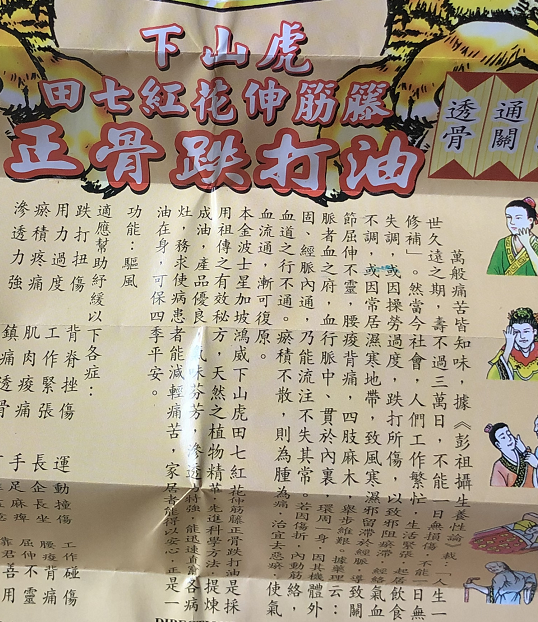 下山虎
田七紅花伸筋籐
正骨跌打油
透骨
通關
萬般痛苦皆知味 據《彭祖攝生養性論》載:「人生一
世久遠之期,壽不過三萬日,不能一日無損傷,不能一日無
修補」。然當今社會,人們工作繁忙,生活緊張,起居飲食
失調,或因操勞過度,跌打所傷,以致邪阻瘀滯,經絡氣血
不調,或因常居濕寒地帶,致風寒濕邪留滯於經脈,導致關
節屈伸不靈,腰痠背痛,四肢麻木,舉步維艱。據藥理云:
脈者血之府,血行脈中,貫於內裏,環周一身,因其機體外
固、經脈內通,乃能流注不失其常。若因傷折,內動筋絡,
血道之行不通。瘀積不散,則為腫為痛,治宜去惡瘀,使氣
血流通,漸可復原。
本金波士星加坡鴻威下山虎田七紅花伸筋籐正骨跌打油是採
用祖傳之有效秘方,天然之植物精華,先進科學方法,提煉
成油,產品優良,氣味芬芳,滲透力特強,能迅速直
灶,務求使病患者能減輕痛苦,家居者能得以安心,正是一
油在身,可保四季平安。
功能:驅風
適應幫助紓緩以下各症:
跌打扭傷 背脊挫傷 運動撞傷 工作碰傷
用力過度 工作緊張 長企長坐 腰痠
瘀積疼痛 肌肉痠痛 手足麻痺 屈伸不靈
滲透力強 鎮痛透骨 善用